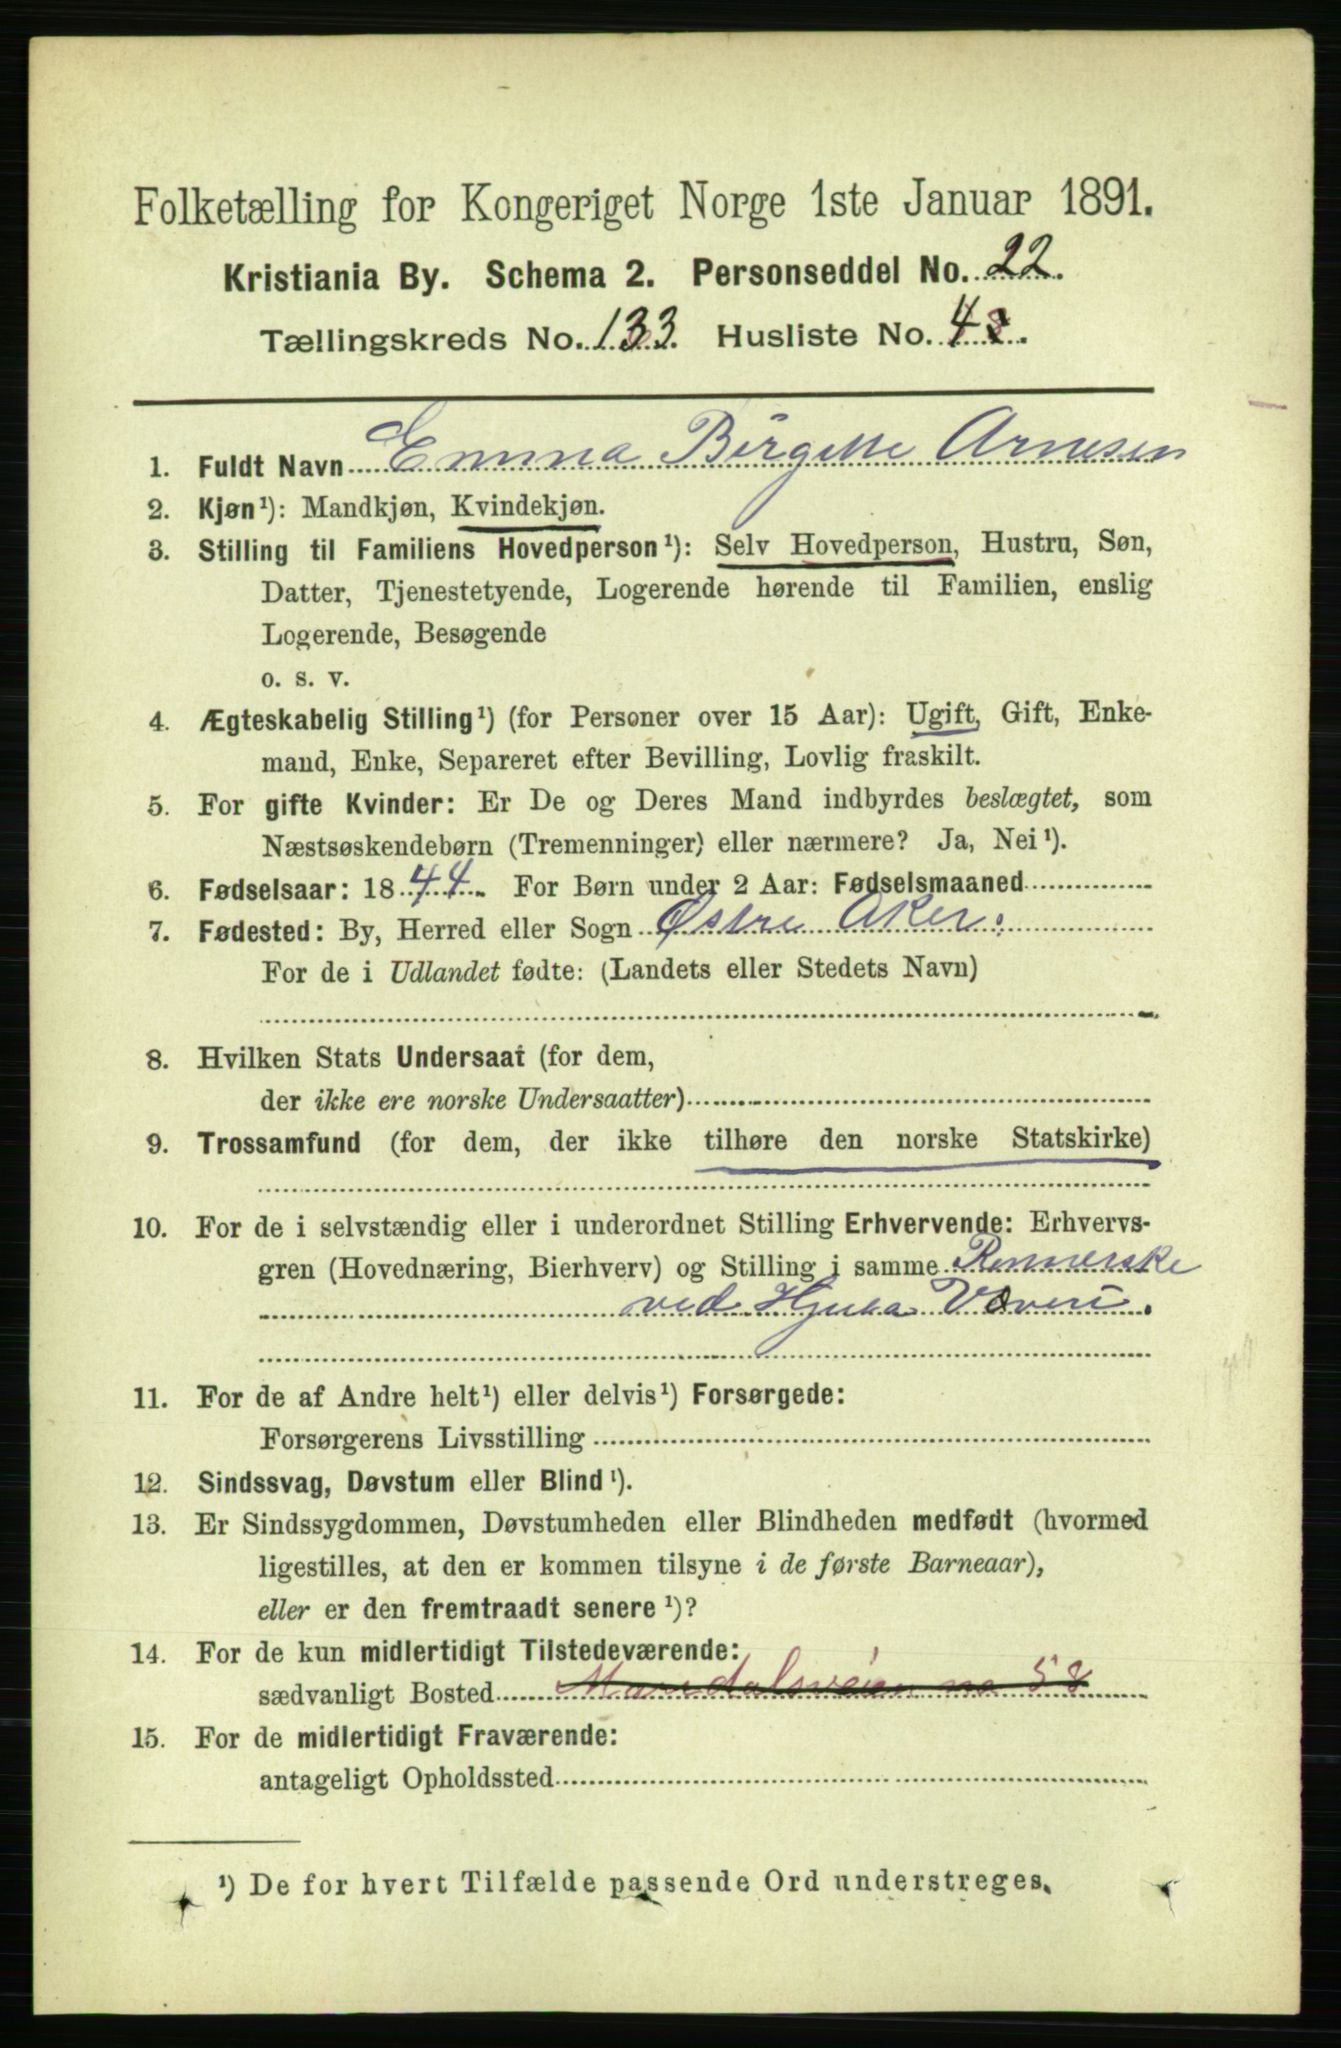 Folketælling for Kongeriget Norge 1ste Januar 1891.
Kristiania By. Schema 2. Personseddel No. 22.
Tællingskreds No. 133. Husliste No. 4
1. Fuldt Navn Emma Birgitte Arnesen
2. Kjøn¹): Mandkjøn, Kvindekjøn.
3. Stilling til Familiens Hovedperson¹): Selv Hovedperson, Hustru, Søn,
Datter, Tjenestetyende, Logerende hørende til Familien, enslig
Logerende, Besøgende
o. s. v.
4. Ægteskabelig Stilling¹) (for Personer over 15 Aar): Ugift, Gift, Enke-
mand, Enke, Separeret efter Bevilling, Lovlig fraskilt.
5. For gifte Kvinder: Er De og Deres Mand indbyrdes beslægtet, som
Næstsøskendebørn (Tremenninger) eller nærmere? Ja, Nei¹).
6. Fødselsaar: 1844. For Børn under 2 Aar: Fødselsmaaned
7. Fødested: By, Herred eller Sogn Østre Aker.
For de i Udlandet fødte: (Landets eller Stedets Navn)
8. Hvilken Stats Undersaat (for dem,
der ikke ere norske Undersaatter)
9. Trossamfund (for dem, der ikke tilhøre den norske Statskirke)
10. For de i selvstændig eller i underordnet Stilling Erhvervende: Erhvervs-
gren (Hovednæring, Bierhverv) og Stilling i samme Rennerske
ved Hjula Væveri.
11. For de af Andre helt¹) eller delvis¹) Forsørgede:
Forsørgerens Livsstilling
12. Sindssvag, Døvstum eller Blind¹).
13. Er Sindssygdommen, Døvstumheden eller Blindheden medfødt (hvormed
ligestilles, at den er kommen tilsyne i de første Barneaar),
eller er den fremtraadt senere¹)?
14. For de kun midlertidigt Tilstedeværende:
sædvanligt Bosted Maridalsveien no 58
15. For de midlertidigt Fraværende:
antageligt Opholdssted
¹) De for hvert Tilfælde passende Ord understreges.